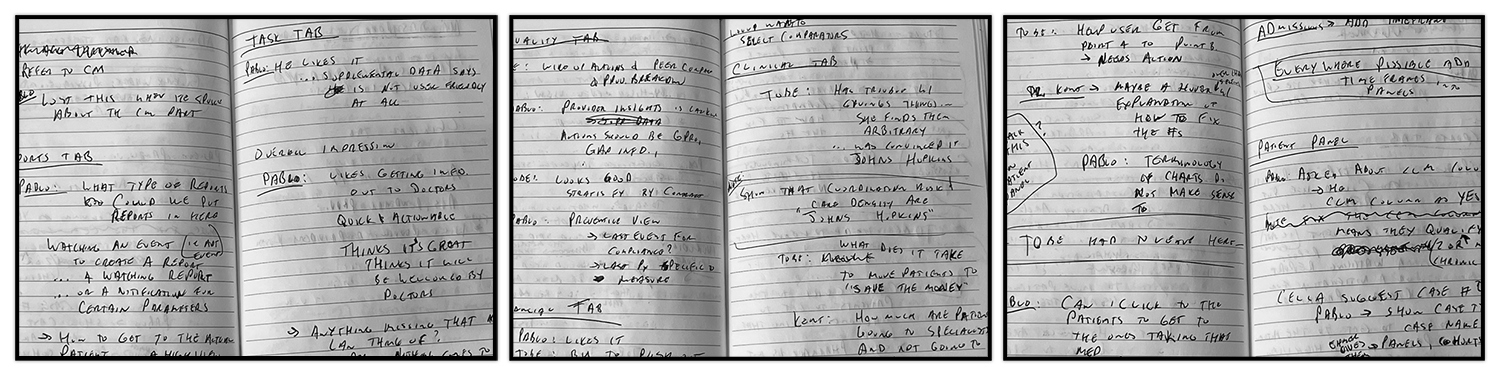 REFER TO CM
LOST THIS WHEN HE SPOKE
ABOUT THE CM PART
PORTS TAB
PABLO: WHAT TYPE OF REPORTS
COULD WE PUT
REPORTS IN HERE
WATCHING AN EVENT (IS NOT
TO CREATE A REPORT EVENT)
... A WATCHING REPORT
... OR A NOTIFICATION FOR
CERTAIN PARAMETERS
→ HOW TO GET TO THE ACTUAL
PATIENT
TASK TAB
PABLO: HE LIKES IT
... SUPPLEMENTAL DATA SAYS
IS NOT USER FRIENDLY
AT ALL
OVERALL IMPRESSION
PABLO: LIKES GETTING INFO
OUT TO DOCTORS
QUICK & ACTIONABLE
THINKS IT'S GREAT
THINKS IT WILL
BE WELCOMED BY
DOCTORS
→ ANYTHING MISSING THAT
CAN THINK OF?
UALITY TAB
& PROV BREAKDOWN
ABLO: PROVIDER INSIGHTS IS
ACTIONS SHOULD BE GPRO,
GAP INFO.,
LOOKS GOOD
STRATIFY BY
PABLO: PREVENTIVE VIEW
→ LAST EVENT FOR
COMPLIANCE?
→ BY SPECIFIC
MEASURE
TAB
PABLO: LIKES IT
SELECT COMPARATORS
CLINICAL TAB
TOBE: HAS TROUBLE W/
THINGS...
SHE FINDS THEM
ARBITRARY
... WAS CONVINCED IT
JOHNS HOPKINS
SHOW THAT COORDINATION RISK &
"CARE DENSITY ARE
JOHNS HOPKINS"
WHAT DOES IT TAKE
TOBE:
TO MOVE PATIENTS TO
"SAVE THE MONEY"
KENT: HOW MUCH ARE PATIEN
GOING TO SPECIALIST
AND NOT GOING TO
TOBE: HELP USER GET FROM
POINT A TO POINT B
→ NEEDS ACTION
DR. KENT → MAYBE A HOVER W/
EXPLANATION OF
HOW TO FIX
THE #S
PABLO: TERMINOLOGY
OF CHARTS DO
NOT MAKE SENSE
TO
TOBE HAD TO LEAVE HERE
BLO: CAN I CLICK TO THE
PATIENTS TO GET TO
THE ONES TAKING THAT
MED
ADMISSIONS → ADD TIMEFRAME
EVERYWHERE POSSIBLE ADD
TIME FRAMES INTO
PANELS
PATIENT PANEL
PABLO: ASKED ABOUT CCM COLU
CCM COLUMN AS YES
MEANS THEY QUALIFY
CHRONIC
CELLA SUGGEST CASE #
PABLO → SHOW CASE
CASE NAME
PANELS, COHORTS